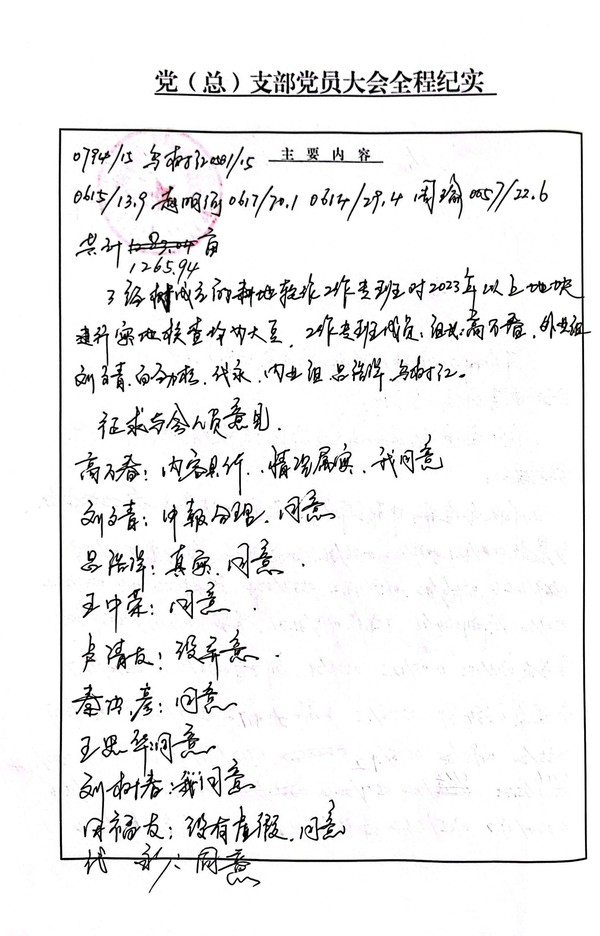 党（总）支部党员大会全程纪实
主要内容
0794/15 乌树江0801/15
0615/13.9 赵明 0617/70.1 0614/29.4 周瑜 0057/22.6
共计 亩
1265.94
了经 成立的耕地轮作工作专班对2023年以上地块
进行实地核查 为大豆，工作专班成员，组长：高万春，外业组
刘 青，白 ，代永，内业组 吕 洋，乌树江。
征求与会人员意见。
高万春：内容具体，情况属实，我同意
刘 青：申报合理，同意
吕 洋：真实，同意。
王中荣：同意。
卢清友：没弃意。
秦 彦：同意。
王思华：同意。
刘树春：我同意
田福友：没有虚假，同意
代 永：同意